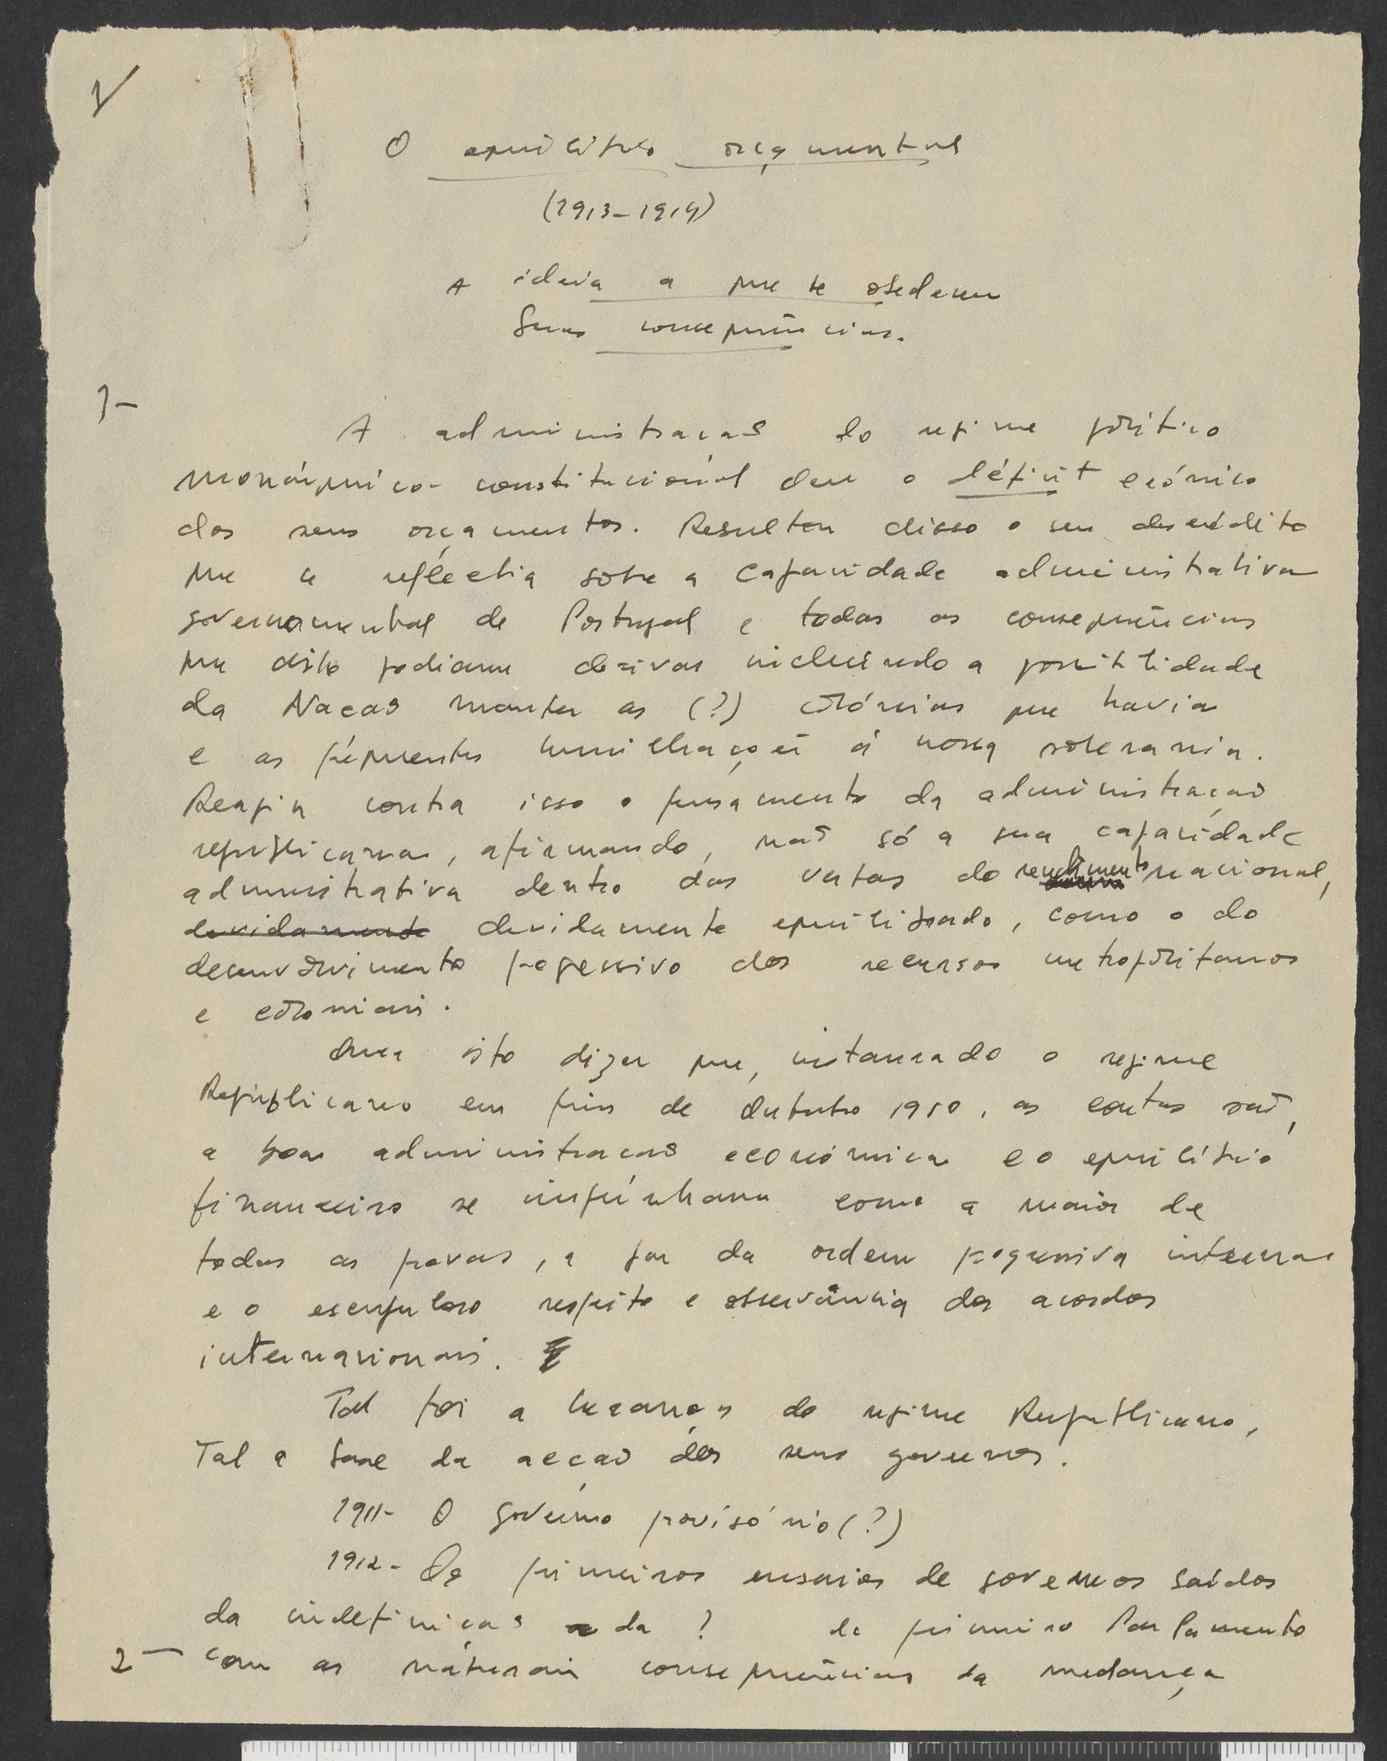 1
O equilibrio orçamental
(1913-1914)
A ideia a que se obedeceu
Suas consequências.
1-
A administração do regime político
monárquico-constitucional deu o déficit crónico
dos seus orçamentos. Resultou disso o seu descrédito
que se reflectia sobre a capacidade administrativa
governamental de Portugal e todas as consequências
que disto podiam derivar incluindo a possibilidade
da Nação manter as (?) colónias que havia
e as frequentes humilhações á nossa soberania.
Reagiu contra isso o pensamento da administração
republicana, afirmando, não só a sua capacidade
administrativa dentro das verbas do rendimento nacional,
devidamente devidamente equilibrado, como o do
desenvolvimento progressivo dos recursos metropolitanos
e coloniais.
Quer isto dizer que, instaurado o regime
Republicano em fins de Outubro 1910, as contas sãs,
a boa administração económica e o equilíbrio
financeiro se impunham como a maior de
todas as provas, a par da ordem progressiva interna
e o escrupuloso respeito e observância dos acordos
internacionais.
Tal foi a herança do regime Republicano,
Tal a base da acção dos seus governos.
1911- O governo provisório (?)
1912- Os primeiros ensaios de governos saídos
da indefinição da ? do primeiro Parlamento
2- com as naturais consequências da mudança